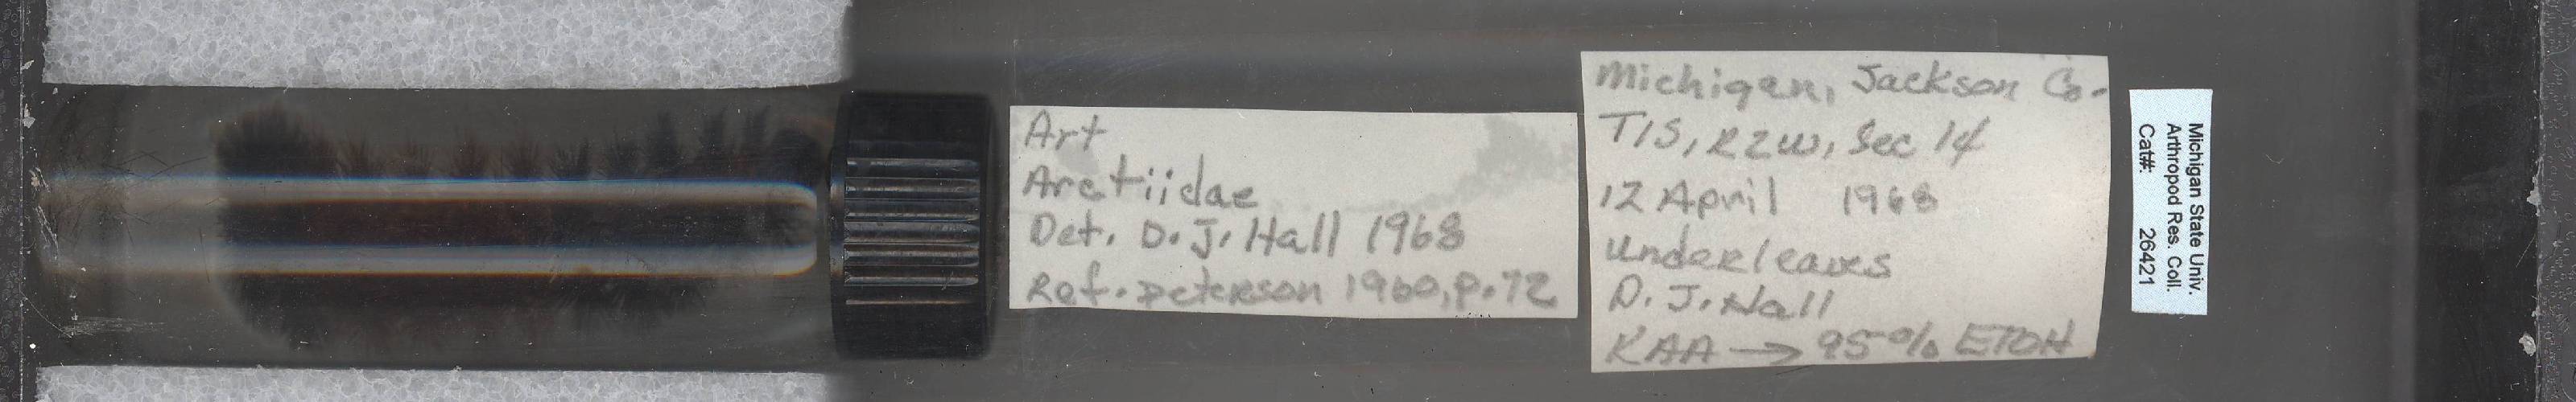 Art
Arctiidae
Det. D. J. Hall 1968
Ref. Peterson 1960, p. 72
Michigan, Jackson Co.
T1S, R2W, Sec 14
12 April 1968
under leaves
D. J. Hall
KAA → 95% ETOH
Michigan State Univ.
Arthropod Res. Coll.
Cat#: 26421